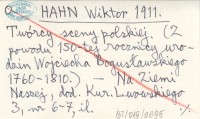 HAHN Wiktor 1911.
Twórcy sceny polskiej. (Z
powodu 150-tej rocznicy uro-
dzin Wojciecha Bogusławskiego
1760-1810.) — Na Ziemi
Naszej, dod. Kur. Lwowskiego
3, nr 6-7, il.